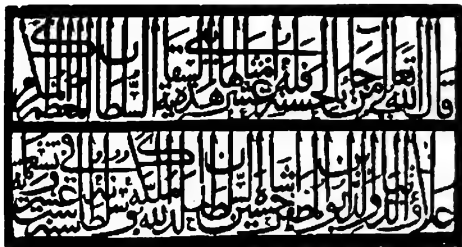 قال الله تعالى من جاء بالحسنة فله عشر امثالها بنى هذه السقاية السلطان المعظم المكرم
علاء الدنيا والدين ابو المظفر حسين شاه السلطان خلد الله ملكه وسلطانه في سنة